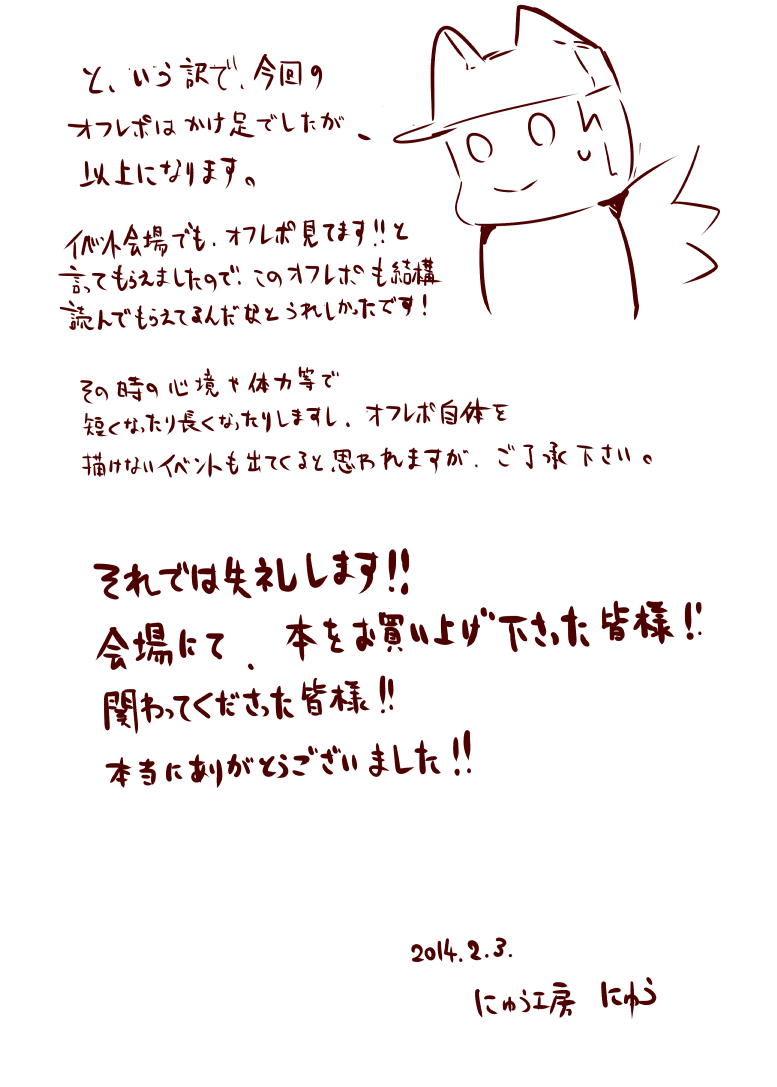 と、いう訳で、今回の
オフレポはかけ足でしたが、
以上になります。
イベント会場でも、オフレポ見てます!!と
言ってもらえましたので、このオフレポも結構
読んでもらえてるんだなとうれしかったです!
その時の心境や体力等で
短くなったり長くなったりしますし、オフレポ自体を
描けないイベントも出てくると思われますが、ご了承下さい。
それでは失礼します!!
会場にて、本をお買い上げ下さった皆様!!
関わってくださった皆様!!
本当にありがとうございました!!
2014.2.3.
にゅう工房 にゅう